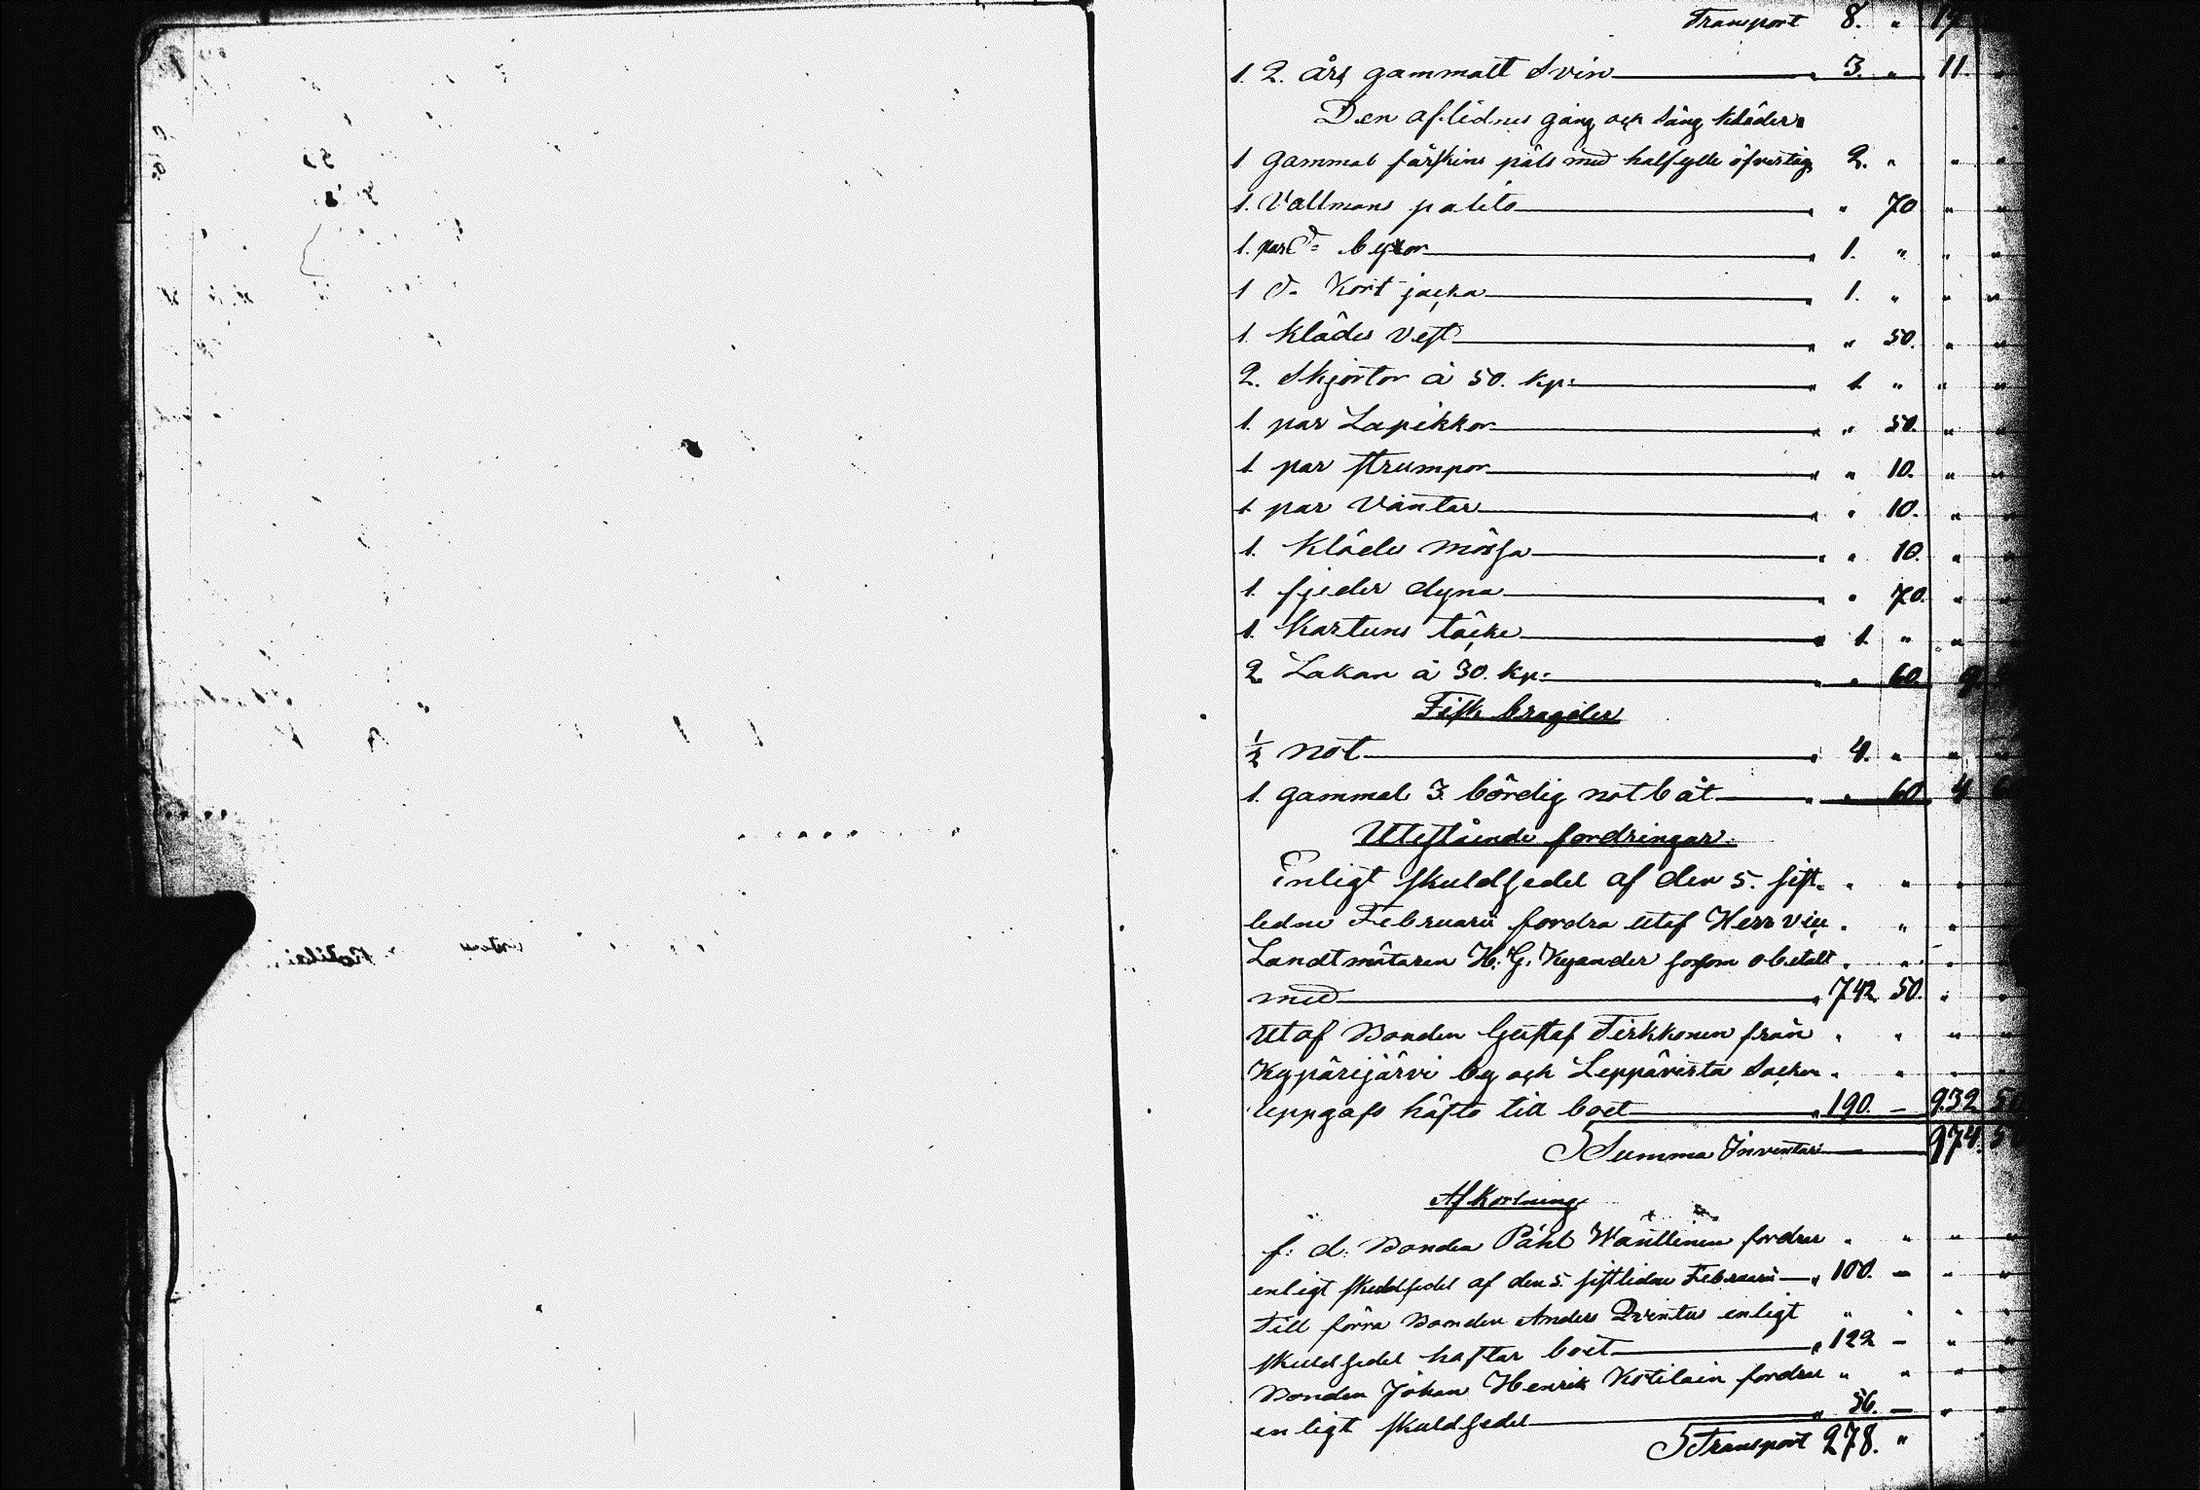 Transport 8. " 17
1. 2. års gammalt Svin 3. " 11. "
Den aflidnes gång och säng kläder.
1 gammal fårskins päls med halfylle öfvertåg 2. " " "
1. Vallmans palito " 70 " "
1. par d:o byxor 1. " " "
1 d:o Kort jacka 1. " " "
1. Klädes Vest " 50. " "
2. Skjortor à 50. kp: 1. " " "
1. par Lapikkor " 50. " "
1. par strumpor " 10. " "
1 par Vantar " 10. " "
1. Klädes mössa " 10. " "
1. fjeder dyna " 70. " "
1. Kartuns täcke 1. " " "
2 Lakan à 30. kp: " 60. 9.
Fisk bragder
1/2 not 4. " " "
1. gammal 3. bördig notbåt " 60. 4
Utestående fordringar.
Enligt skuldsedel af den 5. sist- " " " "
ledne Februarii fordra utaf Herr vice " " "
Landtmätaren H. G. Kyander sosom obetalt " " "
med 742. 50. " "
Utaf Bonden Gustaf Tirkkonen från " " " "
Kypärijärvi by och Leppävirta Socken " " " "
uppgafs häfta till boet 190. — 932 50
Summa Inventar 974. 5
Afkortning
f: d: Bonden Påhl Wänttinen fordrar " " " "
enligt skuldsedel af den 5. sistlidne Februarii 100. — " "
Till förra Bonden Anders Qvintus enligt " " " "
skuldsedel häftar boet 122 — " "
Bonden Johan Henrik Kotilain fordrar " " " "
enligt skuldsedel 56. — " "
Transport 278. "